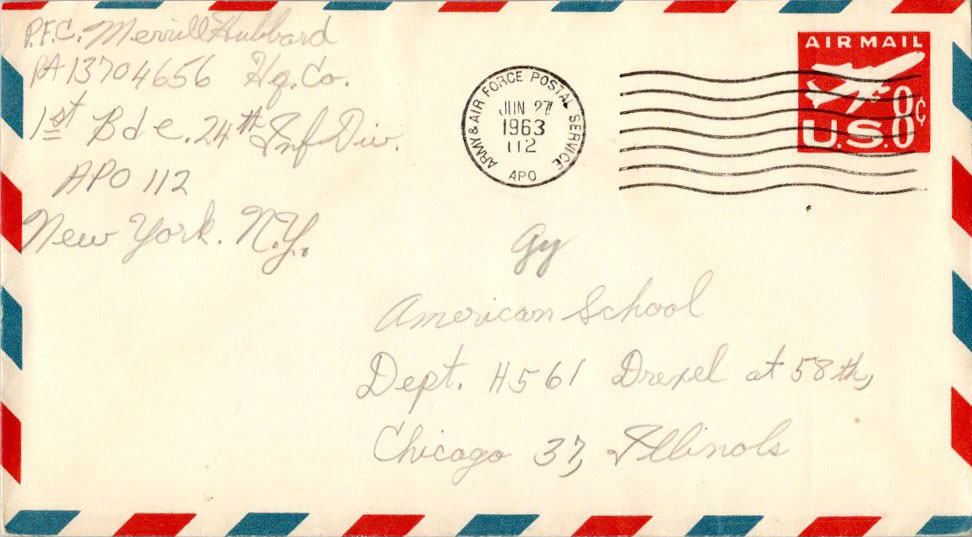 P.F.C. Merrill Hubbard
RA13704656 Hq. Co.
1st Bde. 24th Inf Div.
APO 112
New York. N.Y.
ARMY & AIR FORCE POSTAL SERVICE
JUN 27
1963
112
APO
AIR MAIL
8¢
U.S.
American School
Dept. H561 Drexel at 58th,
Chicago 37, Illinois